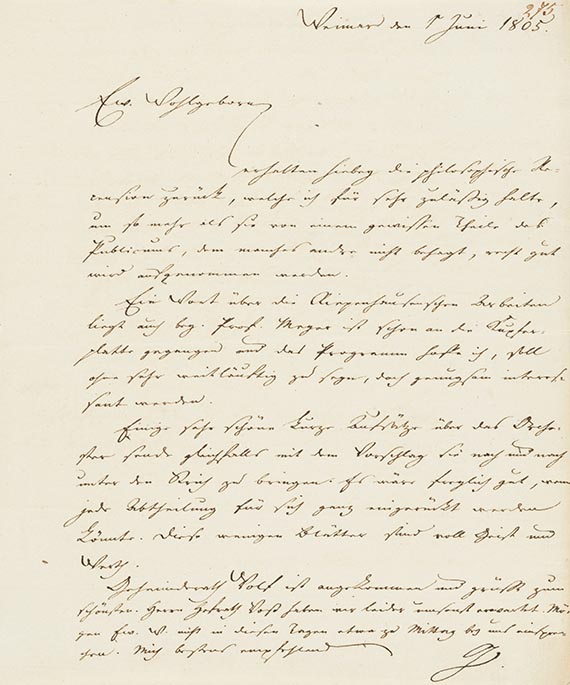 275
Weimar den 1 Juni 1805.
Ew. Wohlgeborn
erhalten hiebey die philosophische Re-
cension zurück, welche ich für sehr zulässig halte,
um so mehr als sie von einem gewissen Theile des
Publicums, dem manches andre nicht behagt, recht gut
wird aufgenommen werden.
Ein Wort über die Riepenhausenschen Arbeiten
liegt auch bey. Prof. Meyer ist schon an die Kupfer-
platte gegangen und das Programm hoffe ich, soll
ohne sehr weitläuftig zu seyn, doch genugsam interes-
sant werden.
Einige sehr schöne kurze Aufsätze über das Orche-
ster sende gleichfalls mit dem Vorschlag sie nach und nach
unter den Strich zu bringen. Es wäre freylich gut, wenn
jede Abtheilung für sich ganz eingerückt werden
könnte. Diese wenigen Blätter sind voll Geist und
Werth.
Geheimderath Wolf ist angekommen und grüßt zum
schönsten. Herrn Hofrath Voß haben wir leider umsonst erwartet. Mö-
gen Ew. W. nicht in diesen Tagen etwa zu Mittag bey uns einspre-
chen. Mich bestens empfehlend
G.